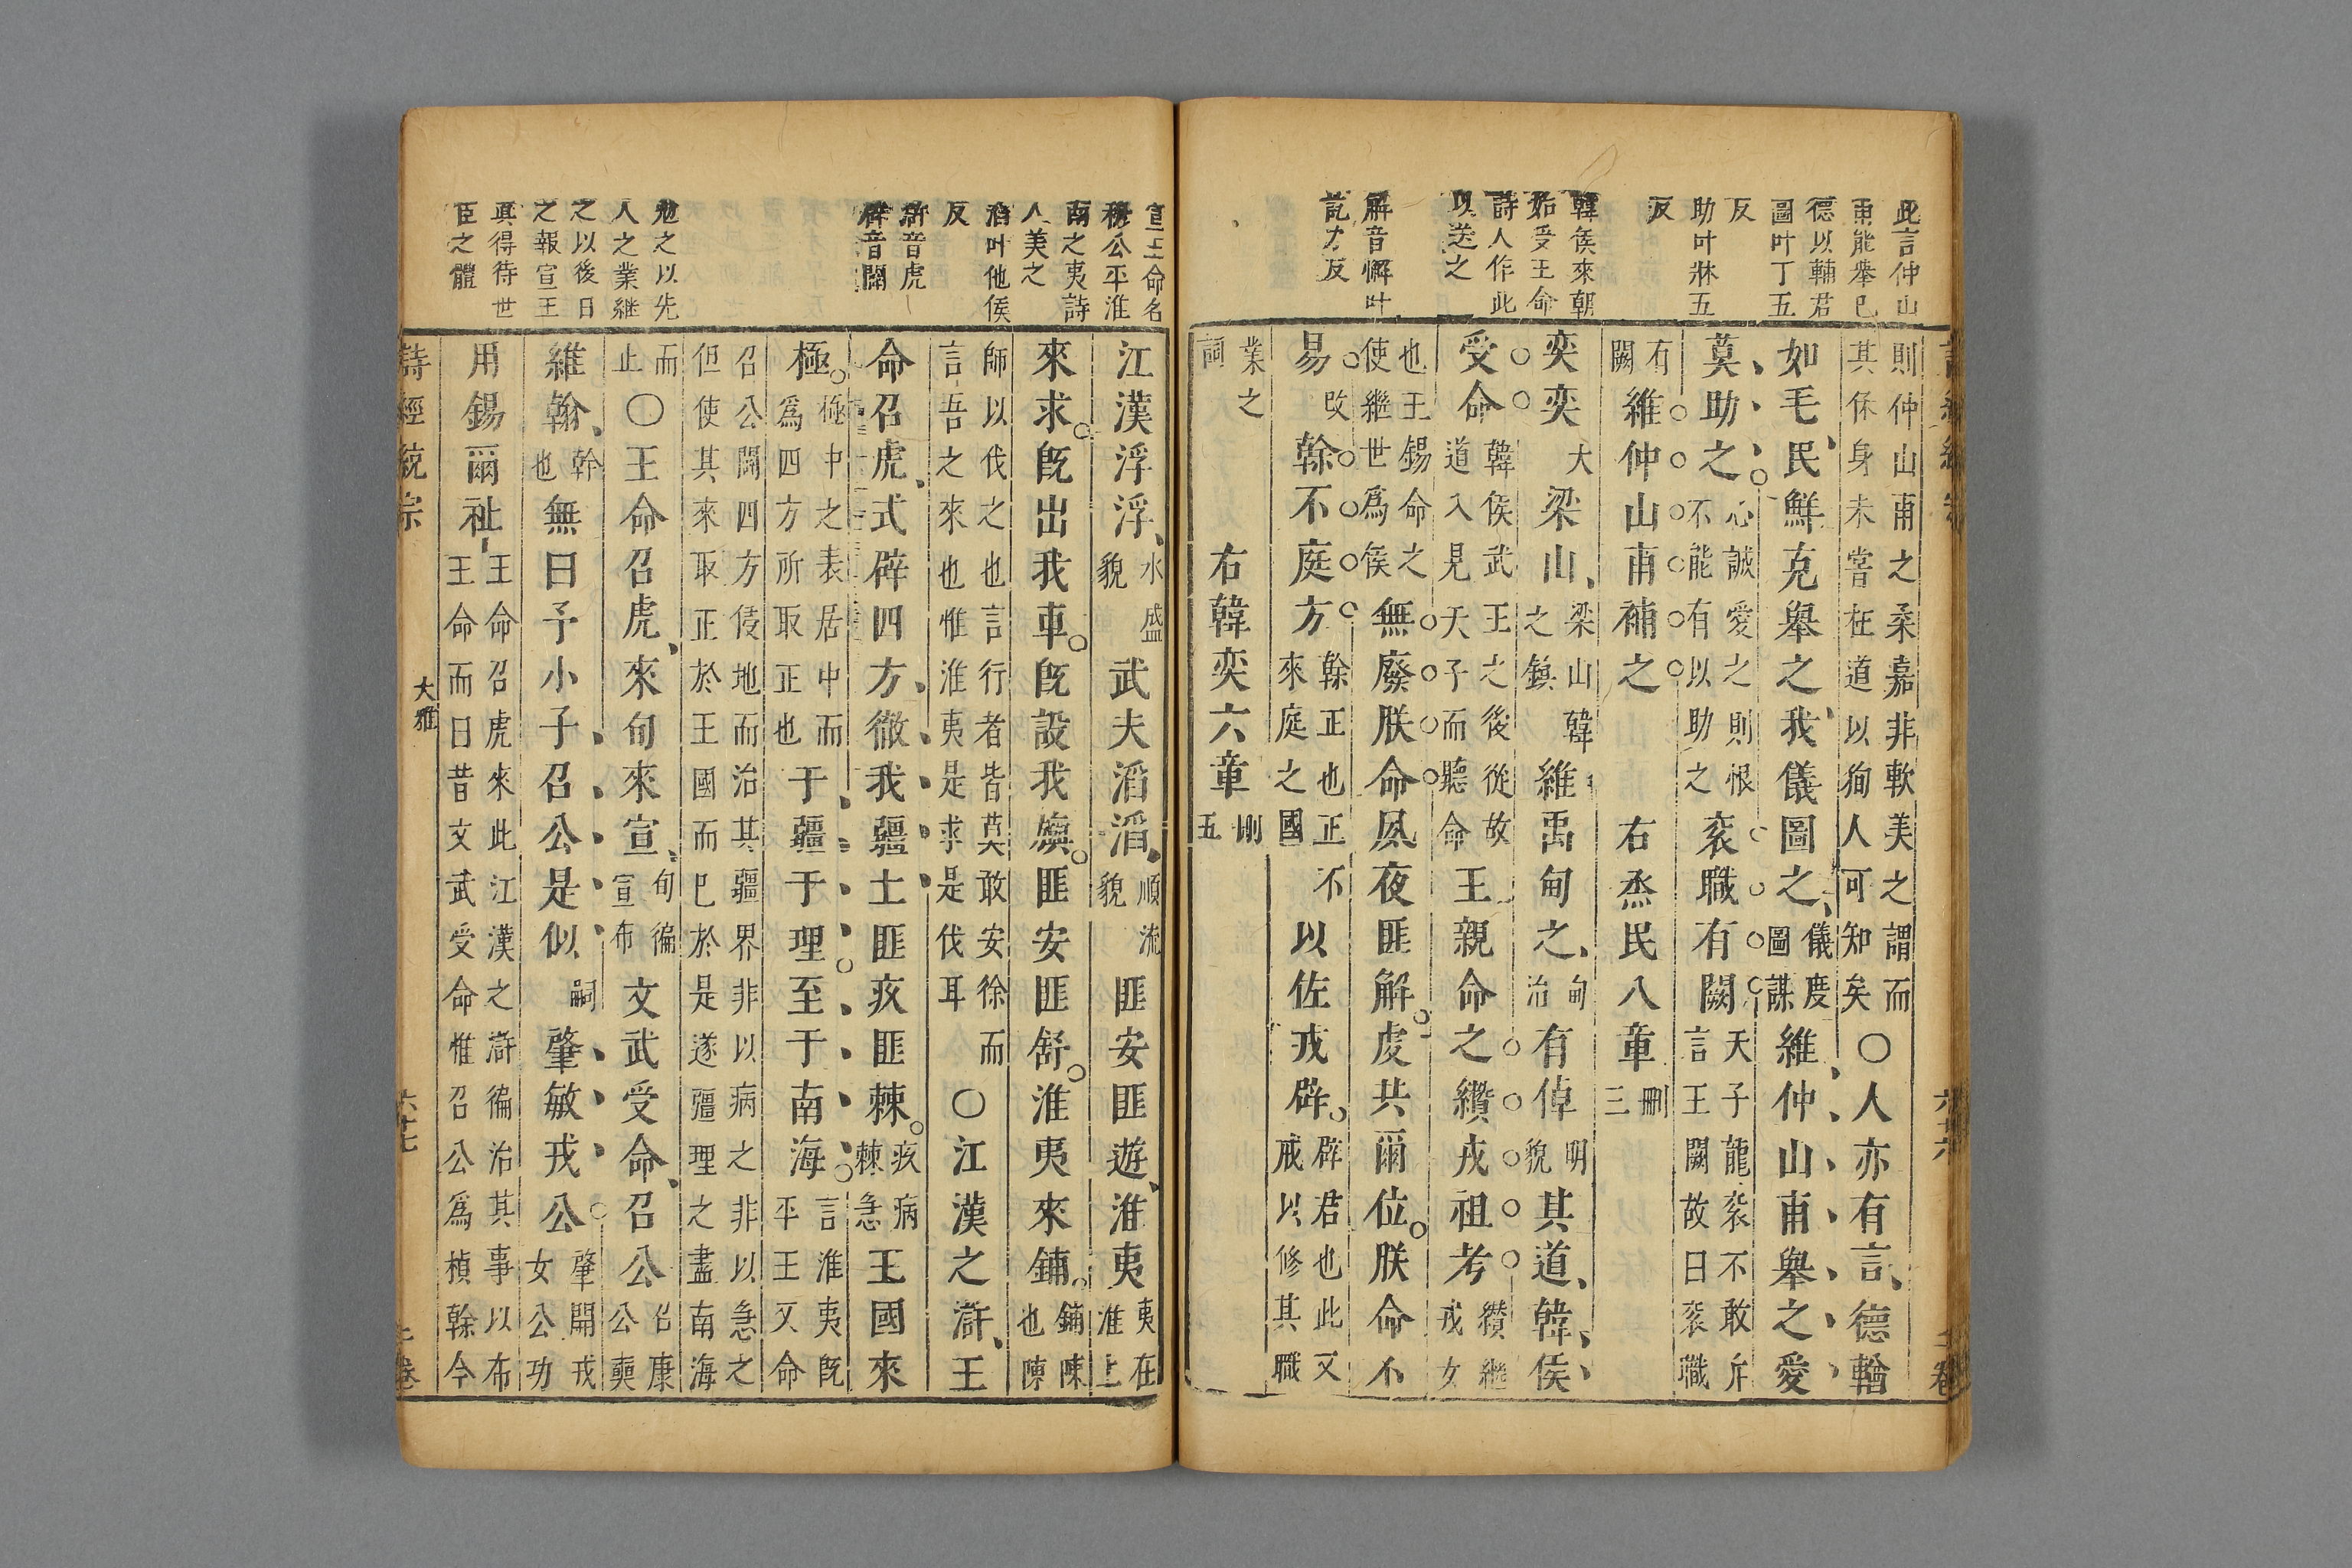 此言仲山
甫能舉已
德以輔君
圖叶丁五
反
助叶牀五
反
韓侯來朝
始受王命
詩人作此
以送之
解音懈叶
訖力反
則仲山甫之柔嘉非軟美之謂而
其保身未嘗枉道以狥人可知矣
○人亦有言德輶
如毛民鮮克舉之我儀圖之
儀度
圖謀
維仲山甫舉之愛
莫助之
心誠愛之則恨
不能有以助之
袞職有闕
天子龍袞不敢斥
言王闕故曰袞職
有
闕
維仲山甫補之
右烝民八章
刪
三
奕奕
大
梁山
梁山韓
之鎮
維禹甸之
甸
治
有倬
明
貌
其道韓侯
受命
韓侯武王之後從故
道入見天子而聽命
王親命之纘戎祖考
纘繼
戎女
也王錫命之
使繼世爲侯
無廢朕命夙夜匪解虔共爾位朕命不
易
改
榦不庭方
榦正也正不
來庭之國
以佐戎辟
辟君也此又
戒以修其職
業之
詞
右韓奕六章
刪
五
六十六
上卷
宣王命召
穆公平淮
南之夷詩
人美之
滔叶他侯
反
滸音虎
辟音闢
勉之以先
人之業継
之以後日
之報宣王
真得待世
臣之體
江漢浮浮
水盛
貌
武夫滔滔
順流
貌
匪安匪遊淮夷
夷在
淮上
來求旣出我車旣設我旟匪安匪舒淮夷來鋪
鋪陳
也陳
師以伐之也言行者皆莫敢安徐而
言吾之來也惟淮夷是求是伐耳
○江漢之滸王
命召虎式辟四方徹我疆土匪疚匪棘
疚病
棘急
王國來
極
極中之表居中而
爲四方所取正也
于疆于理至于南海
言淮夷旣
平王又命
召公闢四方侵地而治其疆界非以病之非以急之
但使其來取正於王國而已於是遂疆理之盡南海
而
止
○王命召虎來旬來宣
旬徧
宣布
文武受命召公
召康
公奭
維翰
榦
也
無曰予小子召公是似
嗣
肇敏戎公
肇開戎
女公功
用錫爾祉
王命召虎來此江漢之滸徧治其事以布
王命而曰昔文武受命惟召公爲楨榦今
詩經統宗
大雅
六十七
上卷